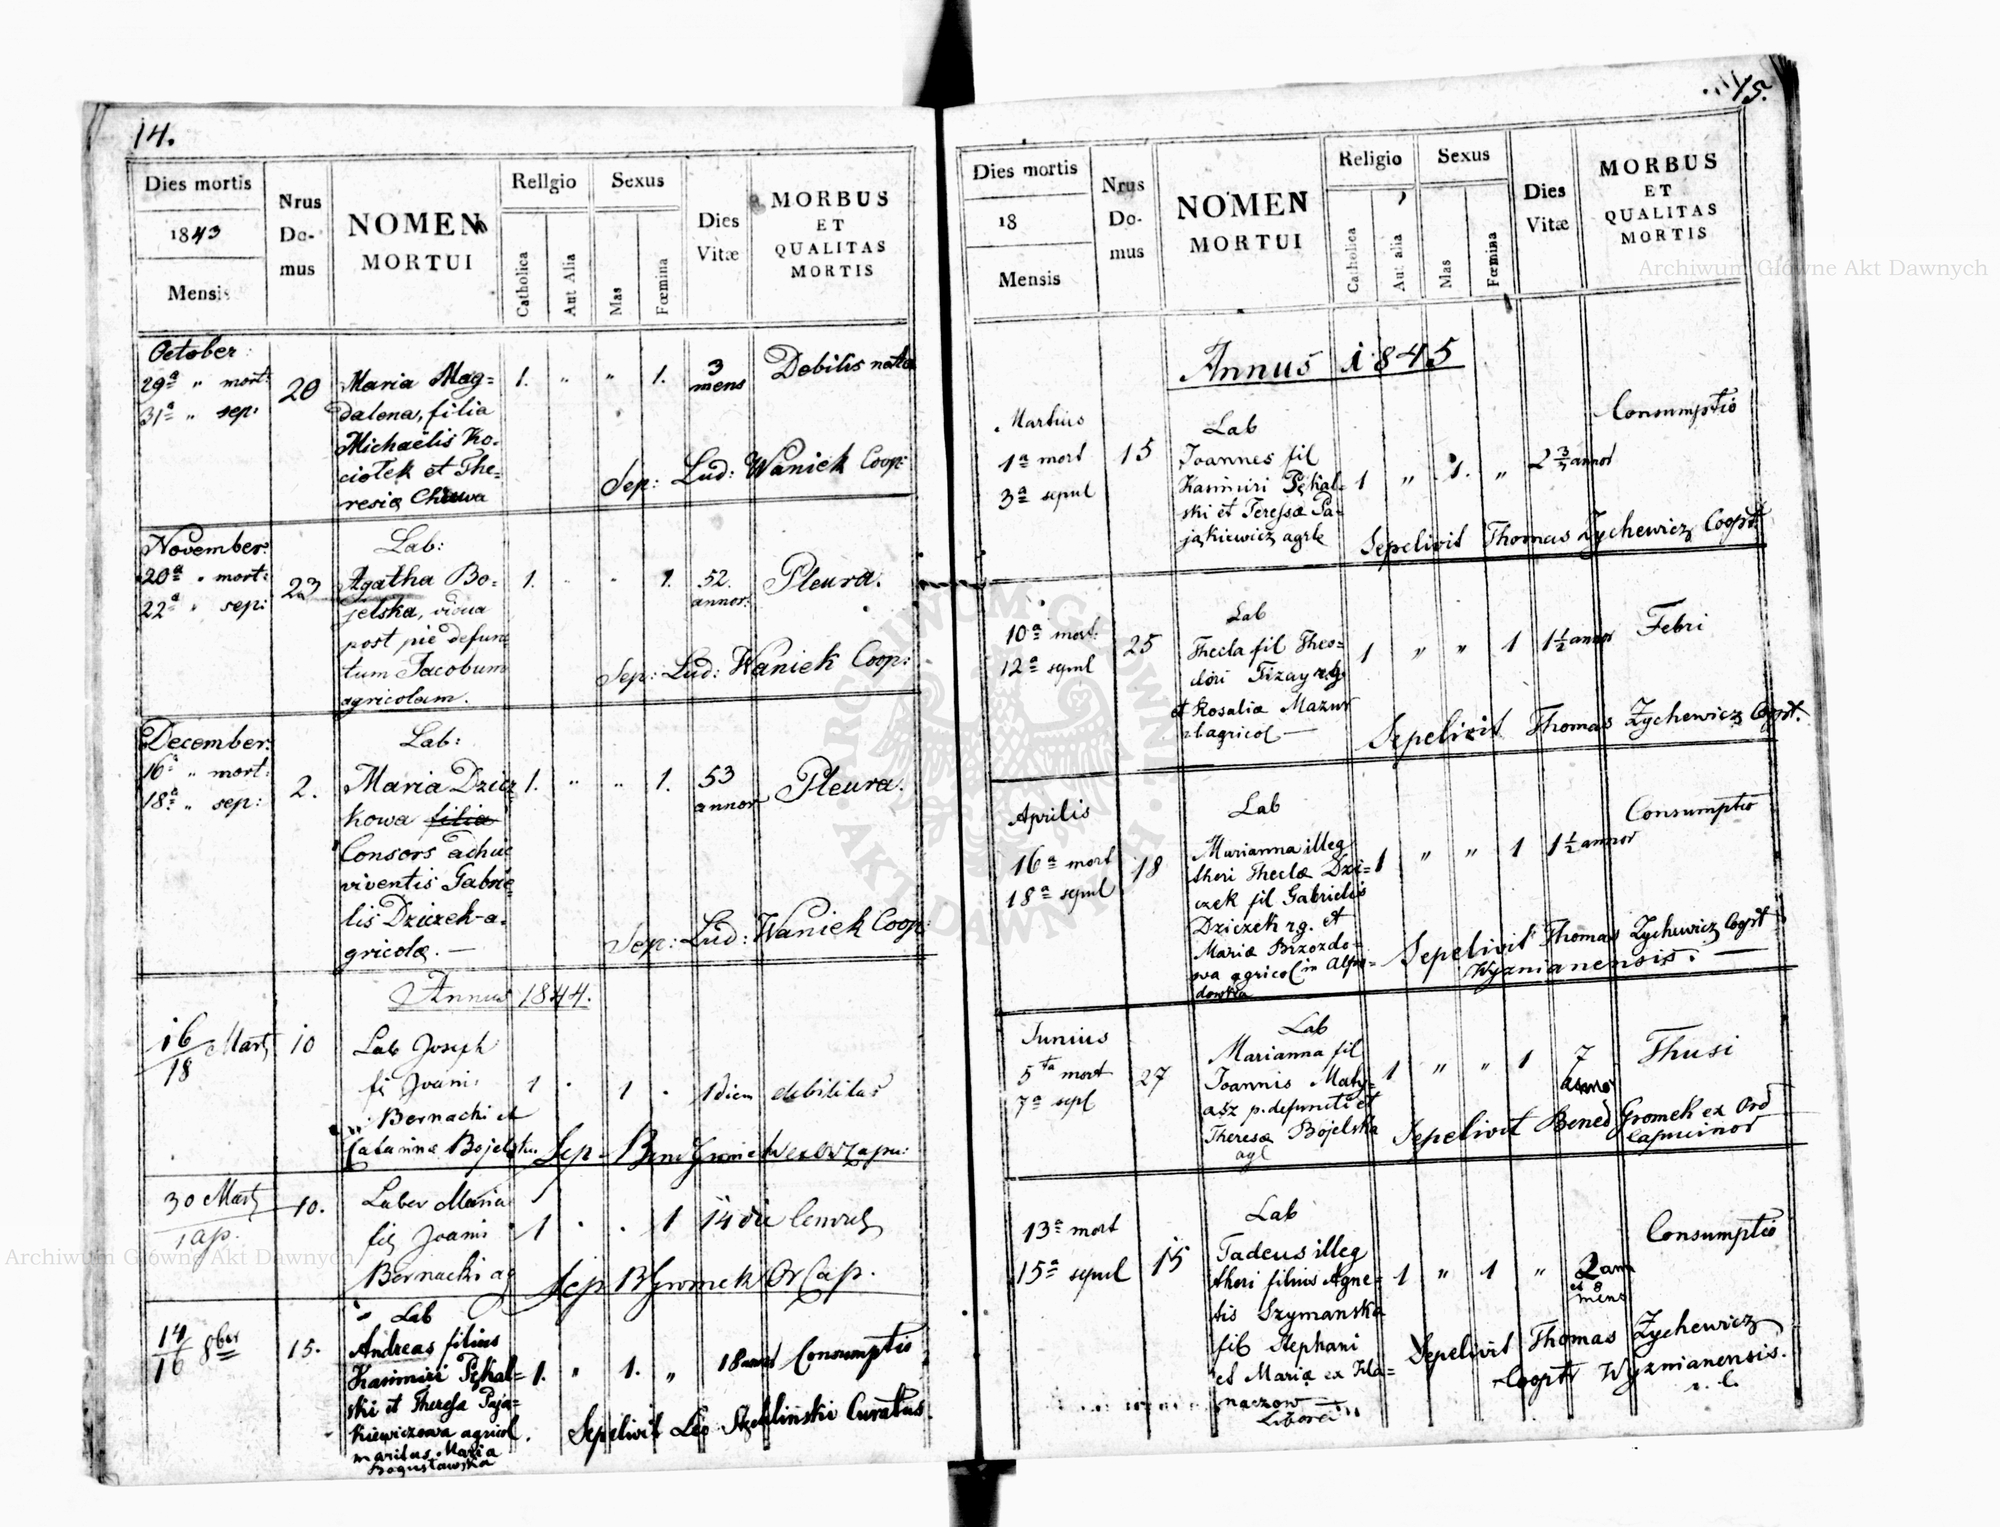 14.
Dies mortis
1843
Mensis
Nrus Do- mus
NOMEN
MORTUI
Religio
Catholica
Aut Alia
Sexus
Mas
Fœmina
Dies Vitæ
MORBUS
ET
QUALITAS
MORTIS
October:
29ª " mort:
31ª " sep:
20
Maria Mag=
dalena, filia
Michaëlis Ko=
ciołek et The=
resiæ
1. " " 1.
3 mens
Debilis nata
Sep: Lud: Waniek Coop:
November:
20ª " mort:
22ª " sep:
23
Lab:
Agatha Bo=
jelska, vidua
post pie defunc
tum Jacobum
agricolam.
1. " " 1.
52. annor:
Pleura.
Sep: Lud: Waniek Coop:
December:
16ª " mort:
18ª " sep:
2.
Lab:
Maria Dzicz
kowa filia
Consors adhuc
viventis Gabrie=
lis Dziczek-a=
gricolæ. —
1. " " 1.
53 annor
Pleura.
Sep: Lud: Waniek Coop:
Annus 1844.
16/18 Martj
10
Lab Joseph
fi Joani
Bernacki et
Catarina Bojelska
1 . 1 .
1 diem
debilitas
Sep
30 Martj
1 ap.
10.
Laber Maria
filj Joanis
Bernacki ag
1 . . 1
14 die
Sep B Gromek Or Cap.
14/16 8ber
15.
Lab
Andreas filius
Kasimiri Pękal=
ski et Theresa Paja=
kiewiczowa agricol.
maritus Maria
Bogusławska
1. " 1. "
18
Consumptio
Sepelivit Leo Curatus.
15.
Dies mortis
18
Mensis
Nrus Do- mus
NOMEN
MORTUI
Religio
Catholica
Aut alia
Sexus
Mas
Fœmina
Dies Vitæ
MORBUS
ET
QUALITAS
MORTIS
Annus 1845
Martius
1ª mort
3ª sepul
15
Lab
Joannes fil
Kasimiri Pękal=
ski et Teressæ Pa=
jąkiewicz agrle
1 " 1. "
annor
Consumptio
Sepelivit Thomas Zychewicz Coopt.
10ª mort:
12ª sepul
25
Lab
Thecla fil Theo=
dori Fizay rg
et Rosaliæ Mazur
rl agricol —
1 " " 1
1½ annor
Febri
Sepelivit Thomas Zychewicz Coopt.
Aprilis
16ª mort
18ª sepul
18
Lab
Marianna illeg
thori Theclæ Dzi=
czek fil Gabrielis
Dziczek rg. et
Mariæ Brzozdo=
wa agricol in
dowka
1 " " 1
1½ annor
Consumptio
Sepelivit Thomas Zychewicz Coopt
Wyznianensis. —
Junius
5ta mort
7ª sepl
27
Lab
Marianna fil
Joannis Maty=
asz p. defuncti et
Theresæ Bojelska
agl
1 " " 1
7
Thusi
Sepelivit Bened Gromek ex Ord
Capucinor
13ª mort
15ª sepul
15
Lab
Tadeus illeg
thori filius Agne=
tis Szymanska
fil Stephani
et Mariæ ex Kla=
maczow
1 " 1 "
2 ann
et 8
mens
Consumptio
Sepelivit Thomas Zychewicz
Coopt Wyznianensis.
r. l.
Archiwum Główne Akt Dawnych
Archiwum Główne Akt Dawnych
ARCHIWUM GŁÓWNE AKT DAWNYCH